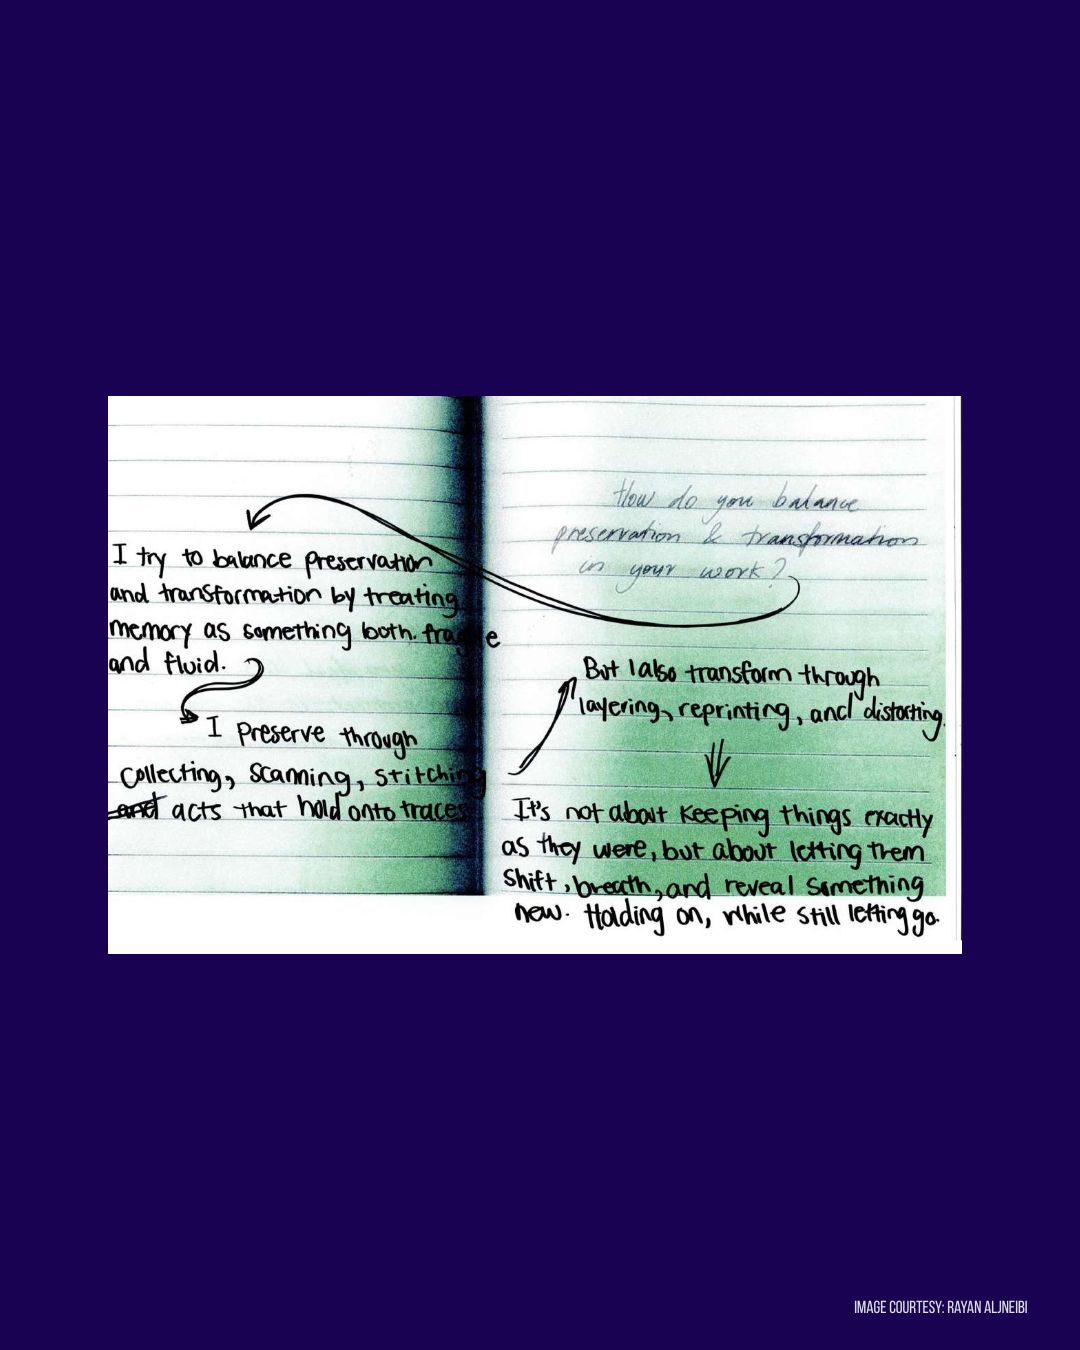 How do you balance
preservation & transformation
in your work?
I try to balance preservation
and transformation by treating
memory as something both fragile
and fluid.
I preserve through
collecting, scanning, stitching
and acts that hold onto traces
But I also transform through
layering, reprinting, and distorting.
It's not about keeping things exactly
as they were, but about letting them
shift, breath, and reveal something
new. Holding on, while still letting go.
IMAGE COURTESY: RAYAN ALJNEIBI